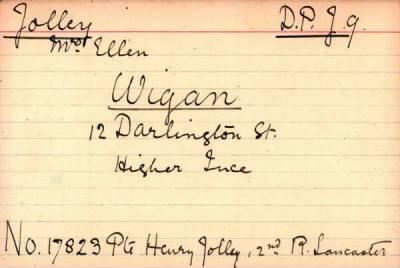 Jolley D.P. J.9.
Mrs Ellen
Wigan
12 Darlington St.
Higher Ince
No. 17823 Pte Henry Jolley, 2nd R. Lancaster